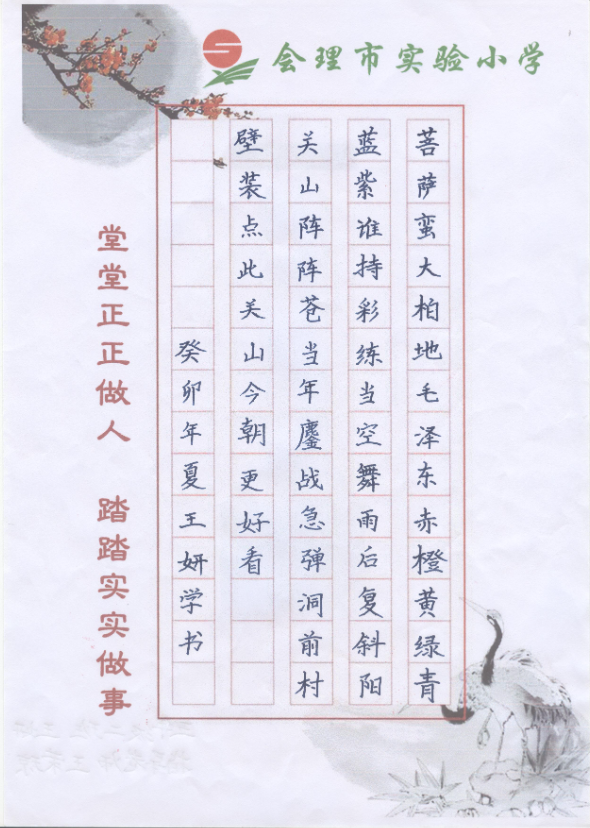 会理市实验小学
菩萨蛮大柏地毛泽东赤橙黄绿青
蓝紫谁持彩练当空舞雨后复斜阳
关山阵阵苍当年鏖战急弹洞前村
壁装点此关山今朝更好看
癸卯年夏王妍学书
堂堂正正做人 踏踏实实做事